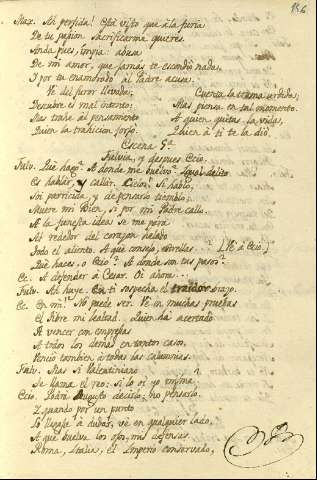 156
Max. Ah perfida! Está visto que á la furia
De tu pasion sacrificarme quieres.
Anda pues, impia: abusa
De mi amor, que jamas te escondió nada,
Y por tu enamorado al Padre acusa.
Ve del furor llevada,
Descubre el mal intento:
Mas trahe al pensamento
Quien la trahicion forjó.
Cuenta la trama urdida;
Mas piensa en tal momento
A quien quitas la vida,
Quien á ti te la dió.
Escena 5ª
Fulvia, y despues Ecio.
Fulv. Qué hago? A donde me buelvo? Igual delito
Es hablar, y callar. Cielos! Si hablo,
Soi parricida, y de pensarlo tiemblo:
Muere mi Bien, si por mi Padre callo.
A la funesta idea se me para
Al rededor del corazon helado
Todo el aliento. A que consejo, estrellas..? [Ve á Ecio.]
Qué haces, o Ecio? A donde son tus pasos?
Ec. A defender á Cesar. Oi ahora...
Fulv. Ah huye. En ti sospecha el traidor brazo.
Ec. En mi! No puede ser. Ve in muchas pruebas
El Tibre mi lealtad. Quien há acertado
A vencer con empresas
A todos los demas en tantos casos,
Venció tambien á todas las calumnias.
Fulv. Mas si Valentiniano
Se llama el reo: si lo oí yo misma;
Ecio. Podrá Augusto decirlo; no pensarlo.
Y quando por un punto
Lo llegase á dudar, vé en qualquier lado,
A que buelva los ojos, mis defensas.
Roma, Italia, el Imperio conservado,